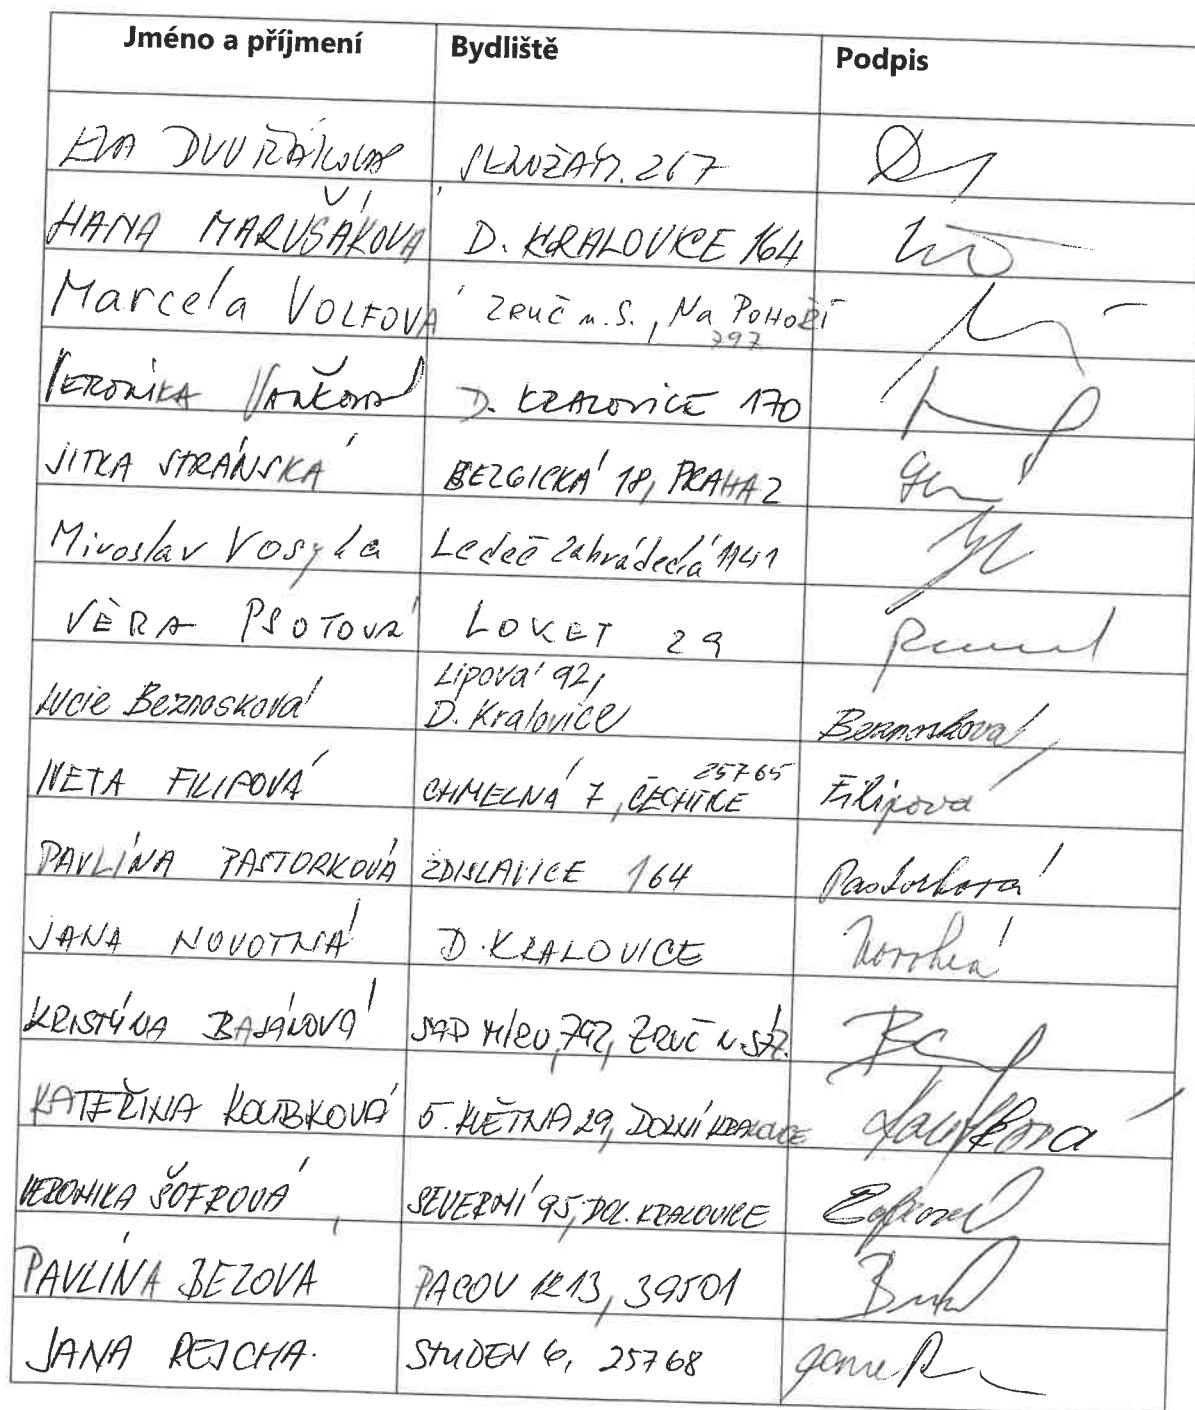 Jméno a příjmení Bydliště Podpis
EVA 267
HANA MARUŠÁKOVÁ D. KRALOVICE 164
Marcela VOLFOVÁ ZRUČ n. S., Na POHOŘÍ
797
VERONIKA VAŇKOVÁ D. KRALOVICE 170
JITKA STRÁNSKÁ BELGICKÁ 18, PRAHA 2
Miroslav Vosyka Ledeč Zahrádecká 1141
VĚRA PSOTOVÁ LOKET 29
Lipová 92,
Lucie Beznosková D. Kralovice Beznosková
25765
IVETA FILIPOVÁ CHMELNÁ 7, ČECHTICE Filipová
PAVLÍNA PASTORKOVÁ ZDISLAVICE 164 Pastorková
JANA NOVOTNÁ D. KRALOVICE Novotná
KRISTÝNA BAJÁNOVÁ SAD MÍRU, 792, ZRUČ N. SÁZ.
KATEŘINA KOUBKOVÁ 5. KVĚTNA 29, DOLNÍ KRALOVICE Koubková
VERONIKA ŠOFROVÁ SEVERNÍ 95, DOL. KRALOVICE
PAVLÍNA BEZOVÁ PACOV 1213, 39501
JANA REJCHA. STUDENÝ 6, 25768